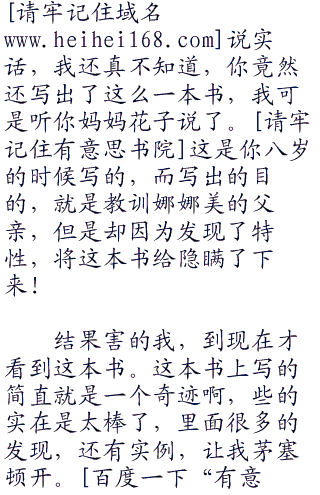 [请牢记住域名
www.heihei168.com]说实
话，我还真不知道，你竟然
还写出了这么一本书，我可
是听你妈妈花子说了。[请牢
记住有意思书院]这是你八岁
的时候写的，而写出的目
的，就是教训娜娜美的父
亲，但是却因为发现了特
性，将这本书给隐瞒了下
来！
结果害的我，到现在才
看到这本书。这本书上写的
简直就是一个奇迹啊，些的
实在是太棒了，里面很多的
发现，还有实例，让我茅塞
顿开。[百度一下“有意